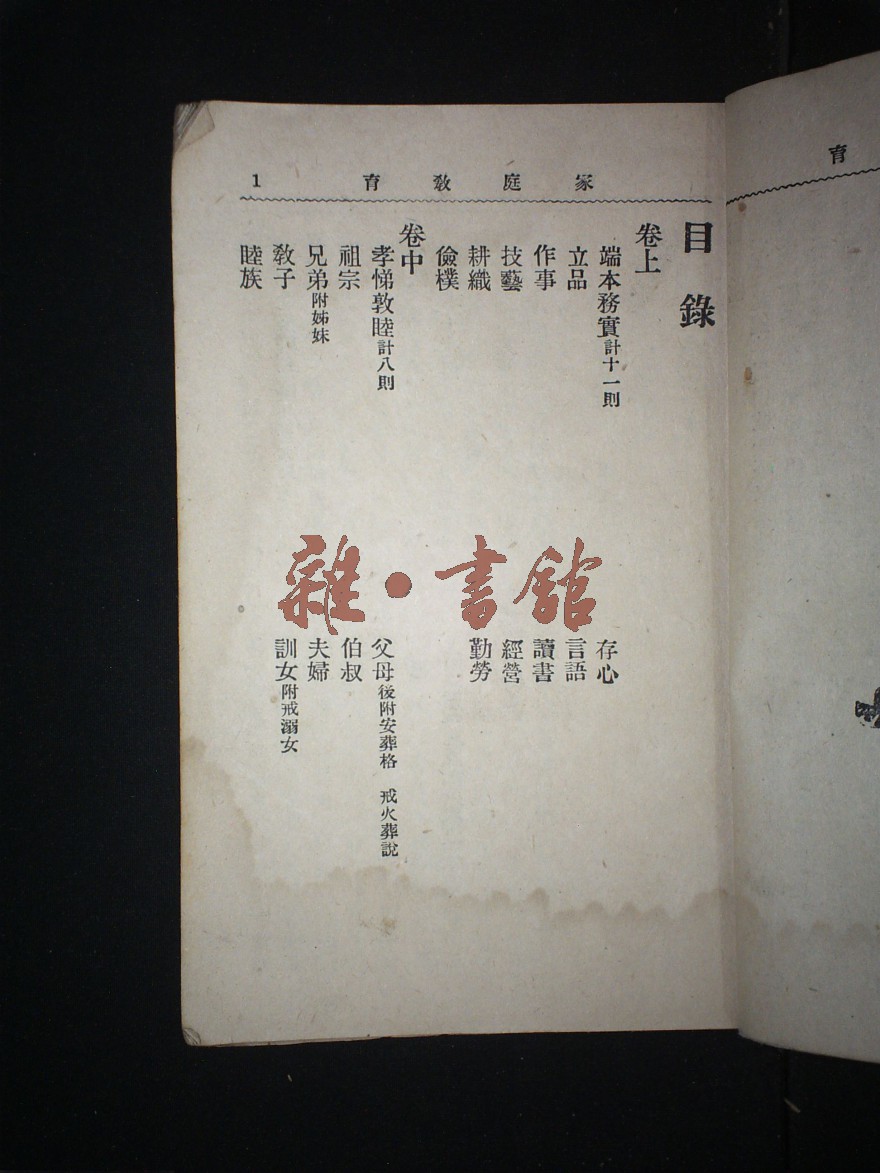 家庭教育 1
目錄
卷上
端本務實計十一則 存心
立品 言語
作事 讀書
技藝 經營
耕織 勤勞
儉樸
卷中
孝悌敦睦計八則 父母後附安葬格 戒火葬說
祖宗 伯叔
兄弟附姊妹 夫婦
教子 訓女附戒溺女
睦族
育
雜·書館